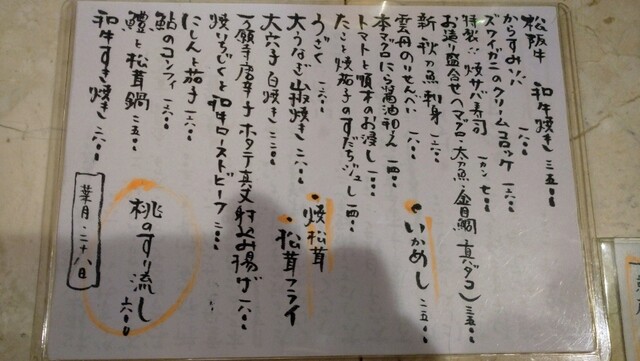 松阪牛 和牛焼き 三五〇〇
からすみソバ 一八〇〇
ズワイガニのクリームコロッケ 一六〇〇
特製!! 焼サバ寿司 一カン 七〇〇
お造り盛合せ(マグロ・太刀魚・金目鯛 真ダコ) 三五〇〇
新秋刀魚刺身 一六〇〇
雲丹のりせんべい 一八〇〇
本マグロにら醤油和え 一四〇〇
トマトと順才のお浸し 一〇〇〇
たこと焼茄子のすだちジュレ 一四〇〇
うざく 一六〇〇
大うなぎ山椒焼き 二八〇〇
大穴子白焼き 二二〇〇
万願寺唐辛子ホタテ真丈射込み揚げ 一八〇〇
焼いちじくと和牛ローストビーフ 二〇〇〇
にしんと茄子 一六〇〇
鮎のコンフィ 一六〇〇
鱧と松茸鍋 二五〇〇
和牛すき焼き 二〇〇〇
いかめし 二五〇〇
焼松茸
松茸フライ
桃のすり流し 六〇〇
葉月・二十八日